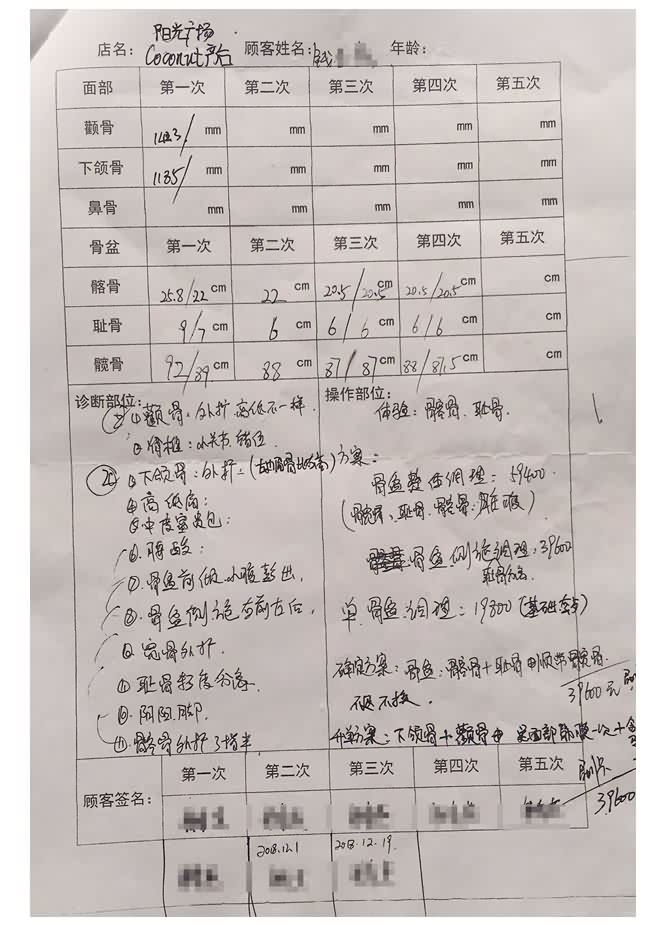 阳光广场
店名: Coconut产后 顾客姓名: 年龄:
面部 第一次 第二次 第三次 第四次 第五次
颧骨 142.3/ mm mm mm mm mm
下颌骨 113.5/ mm mm mm mm mm
鼻骨 mm mm mm mm mm
骨盆 第一次 第二次 第三次 第四次 第五次
髂骨 25.8/22 cm 22 cm 20.5/20.5 cm 20.5/20.5 cm cm
耻骨 9/7 cm 6 cm 6/6 cm 6/6 cm cm
髋骨 92/89 cm 88 cm 87/87 cm 88/87.5 cm cm
诊断部位: 操作部位:
① 颧骨:外扩 高低不一样. 体验:髂骨.耻骨.
② 脊柱:小关节错位
③ 下颌骨:外扩: 方案:
④ 高低肩: 骨盆整体调理:59400
⑤ 中度富贵包: (髋骨、耻骨、髂骨、
⑥ 腰酸: 骨盆侧旋调理:39600
⑦ 骨盆前倾.小腹凸出. 耻骨分离
⑧ 骨盆侧旋右前左后. 单骨盆调理:19800(基础套)
⑨ 宽骨外扩 确定方案:骨盆:髂骨+耻骨 顺带髋骨.
耻骨轻度分离 39600元
阴阳脚. 不设不接.
⑪ 髂骨外扩3指半 方案:下颌骨+颧骨 面部 一次+
39600
顾客签名: 第一次 第二次 第三次 第四次 第五次
2018.12.1 2018.12.19